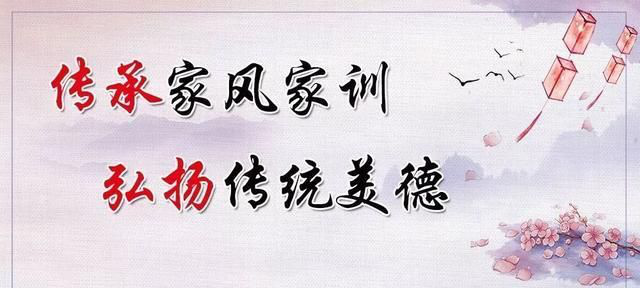 传承家风家训
弘扬传统美德